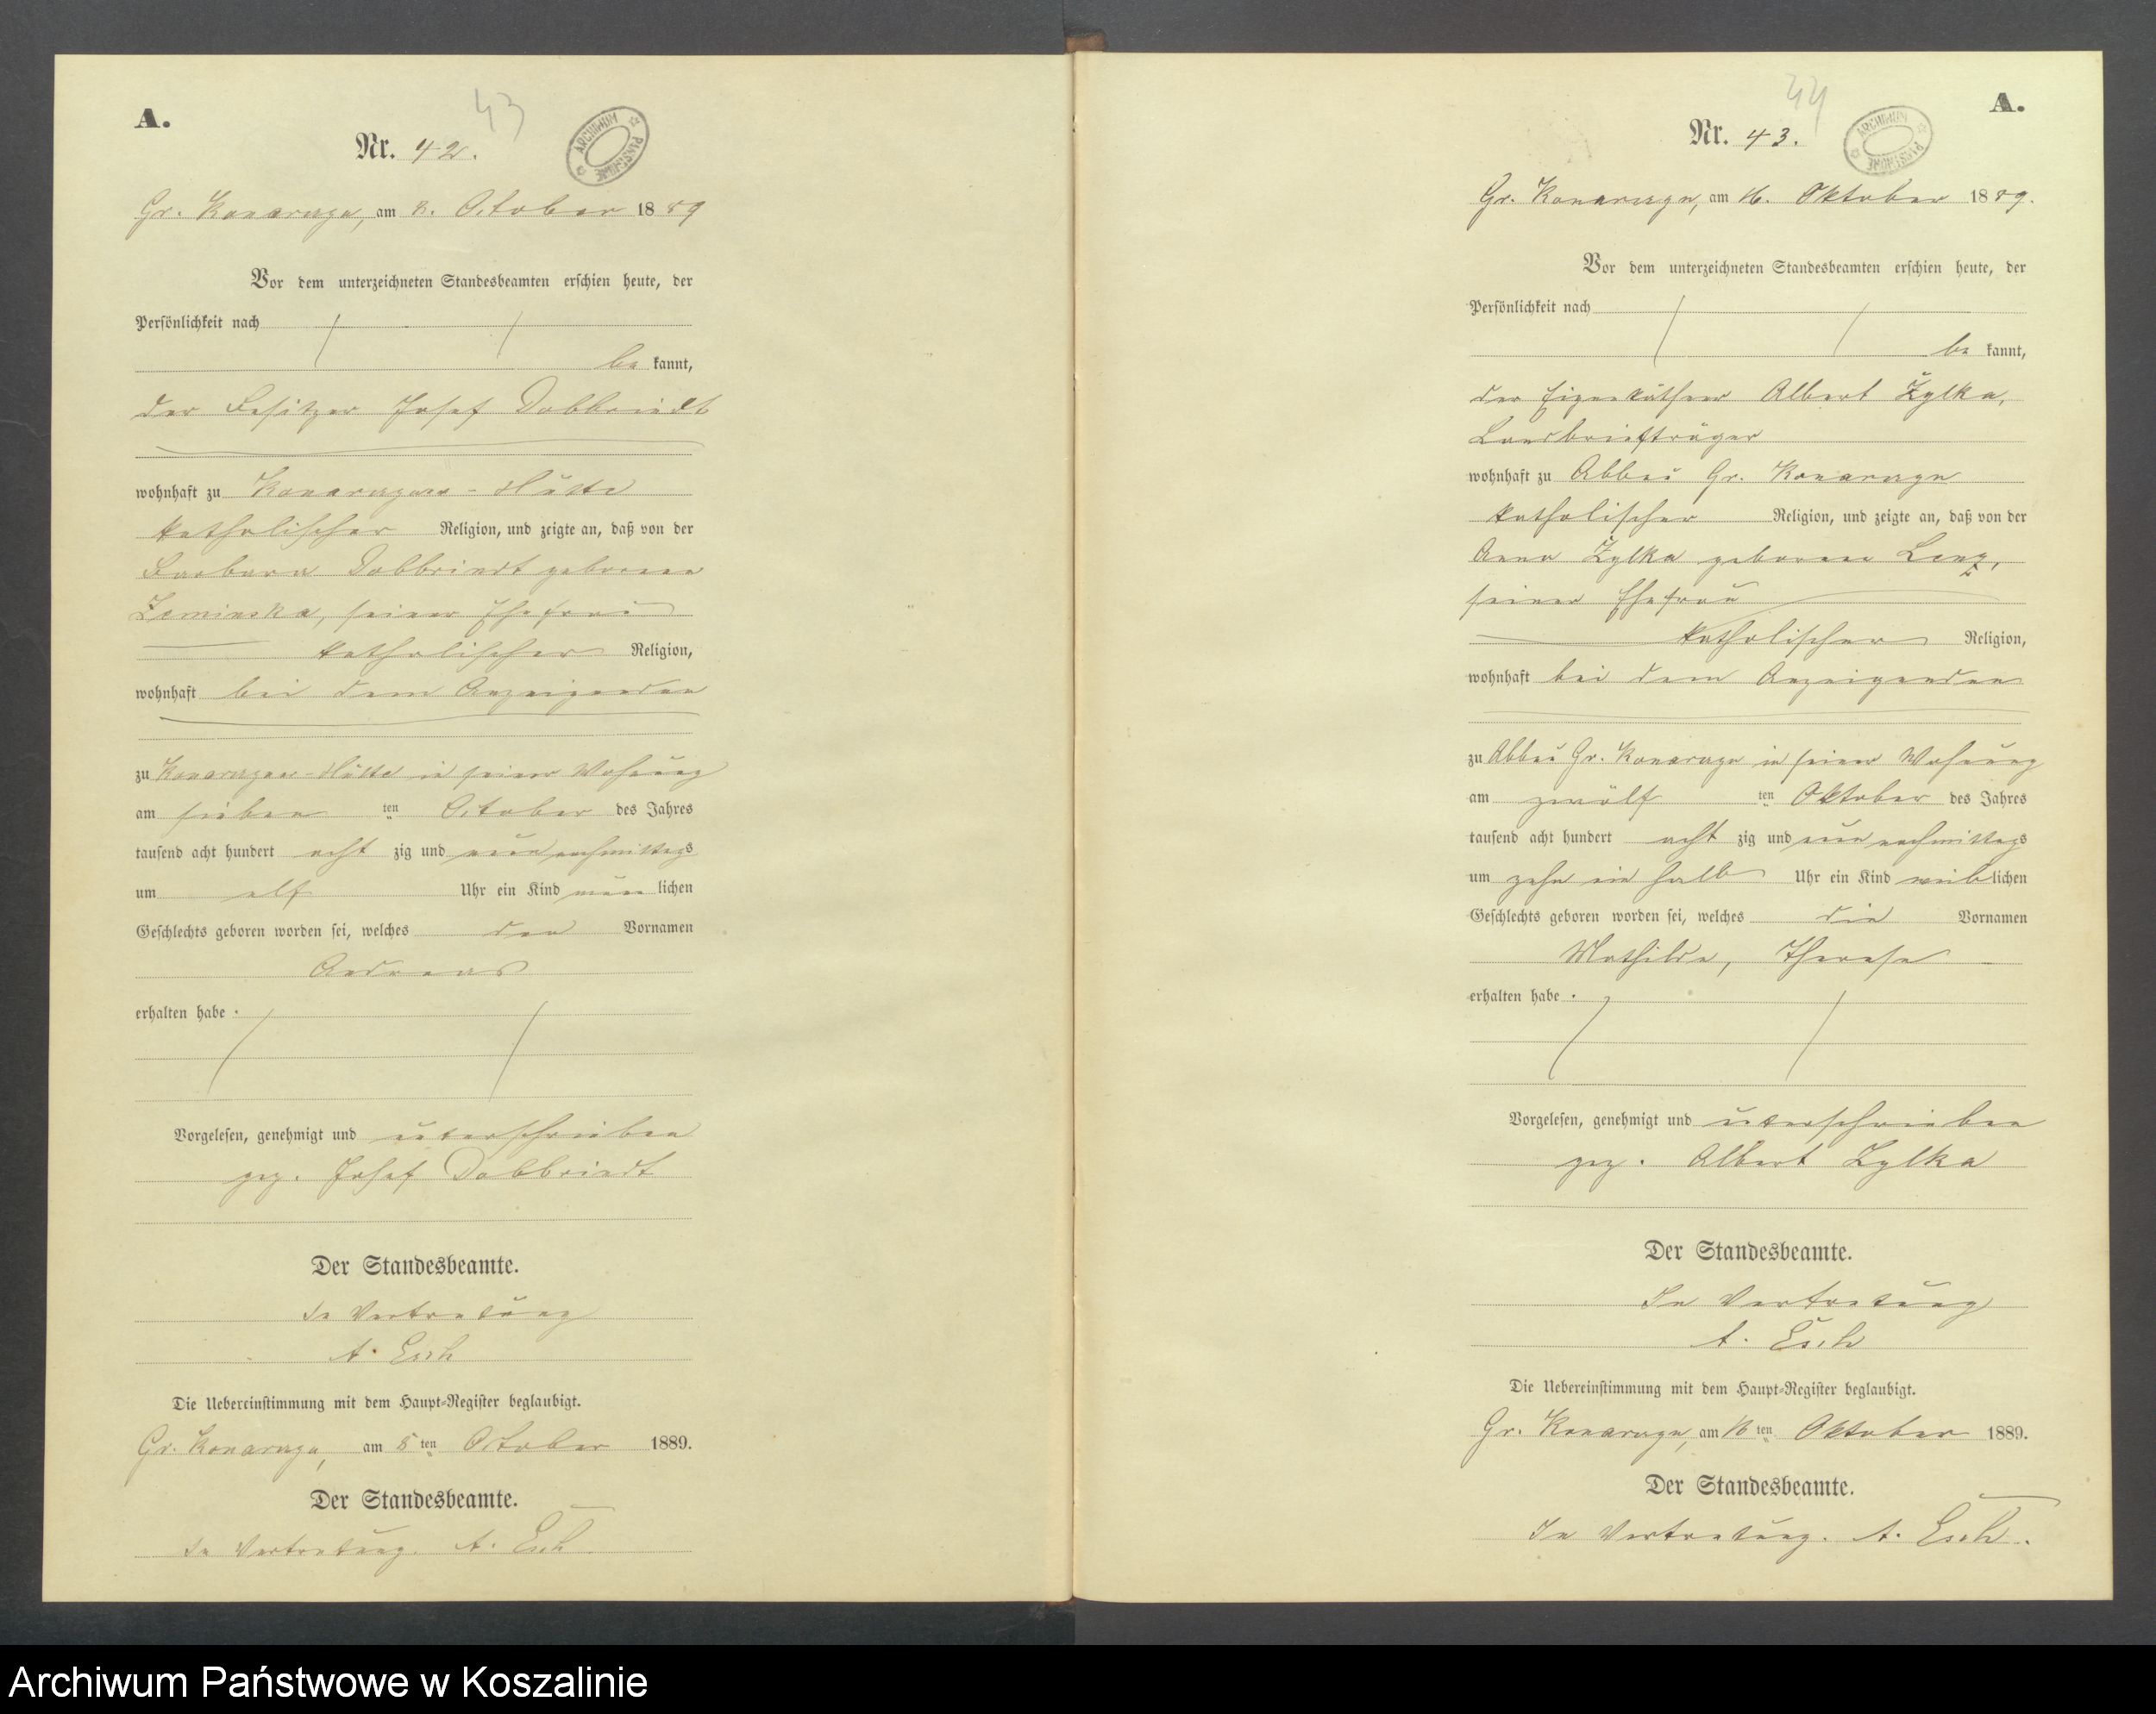 A.
43
Nr. 42.
ARCHIWUM PAŃSTWOWE
Gr. Konarczyn, am 8. October 1889
Vor dem unterzeichneten Standesbeamten erschien heute, der
Persönlichkeit nach
be kannt,
der Besitzer Josef Dobbrindt
wohnhaft zu Konarczyner-Hütte
katholischer Religion, und zeigte an, daß von der
Barbara Dobbrindt geborene
Zeminska, seiner Ehefrau
katholischer Religion,
wohnhaft bei dem Anzeigenden
zu Konarczyner-Hütte in seiner Wohnung
am sieben ten October des Jahres
tausend acht hundert acht zig und neun nachmittags
um elf Uhr ein Kind männ lichen
Geschlechts geboren worden sei, welches den Vornamen
Andreas
erhalten habe.
Vorgelesen, genehmigt und unterschrieben
gez. Josef Dobbriendt
Der Standesbeamte.
In Vertretung
A. Esch
Die Uebereinstimmung mit dem Haupt-Register beglaubigt.
Gr. Konarczyn, am 8ten October 1889.
Der Standesbeamte.
In Vertretung. A. Esch
44
A.
Nr. 43.
ARCHIWUM PAŃSTWOWE
Gr. Konarczyn, am 16. Oktober 1889.
Vor dem unterzeichneten Standesbeamten erschien heute, der
Persönlichkeit nach
be kannt,
der Eigenkäthner Albert Żylka,
Landbriefträger
wohnhaft zu Abbau Gr. Konarczyn
katholischer Religion, und zeigte an, daß von der
Anna Żylka geborene Lenz,
seiner Ehefrau
katholischer Religion,
wohnhaft bei dem Anzeigenden
zu Abbau Gr. Konarczyn in seiner Wohnung
am zwölf ten Oktober des Jahres
tausend acht hundert acht zig und neun nachmittags
um zehn ein halb Uhr ein Kind weib lichen
Geschlechts geboren worden sei, welches die Vornamen
Mathilde, Therese
erhalten habe.
Vorgelesen, genehmigt und unterschrieben
gez. Albert Zylka
Der Standesbeamte.
In Vertretung
A. Esch
Die Uebereinstimmung mit dem Haupt-Register beglaubigt.
Gr. Konarczyn, am 16ten Oktober 1889.
Der Standesbeamte.
In Vertretung. A. Esch.
Archiwum Państwowe w Koszalinie